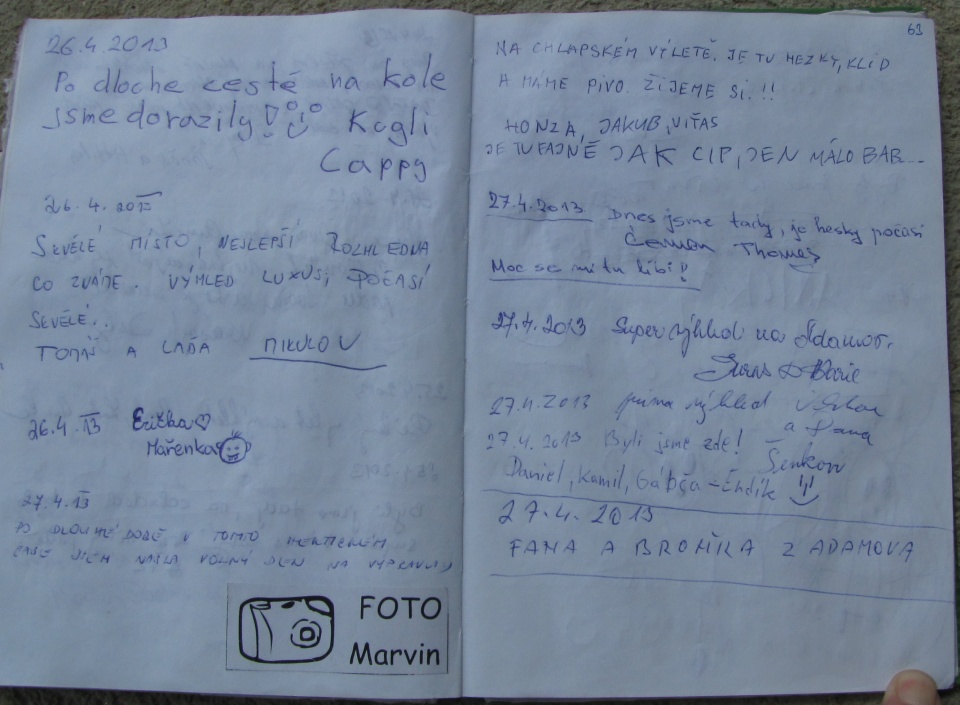 26.4.2013
Po dloche cestě na kole
jsme dorazily! Kogli
Cappy
26.4.2013
SKVĚLÉ MÍSTO, NEJLEPŠÍ ROZHLEDNA
CO ZNÁME. VÝHLED LUXUS, POČASÍ
SKVĚLÉ..
TOMÁŠ A LAĎA MIKULOV
26.4.13 Eržička♡
Mařenka
27.4.13
PO DLOUHÉ DOBĚ V TOMTO HEKTICKÉM
ČASE JSEM NAŠLA VOLNÝ DEN NA
FOTO
Marvin
63
NA CHLAPSKÉM VÝLETĚ. JE TU HEZKY, KLID
A MÁME PIVO. ŽIJEME SI.!!
HONZA, JAKUB, VIŤAS
JE TU FAJNĚ JAK CIP, JEN MÁLO BAB...
27.4.2013 Dnes jsme tady, je hesky počasí
Thomas
Moc se mi tu libi!
27.4.2013 Super výhled na Adamov.
Marie
27.4.2013 prima výhled
a Dana
27.4.2013 Byli jsme zde! Šenkov
Daniel, Kamil, Gábča
27.4.2013
FANA A BROŇKA Z ADAMOVA